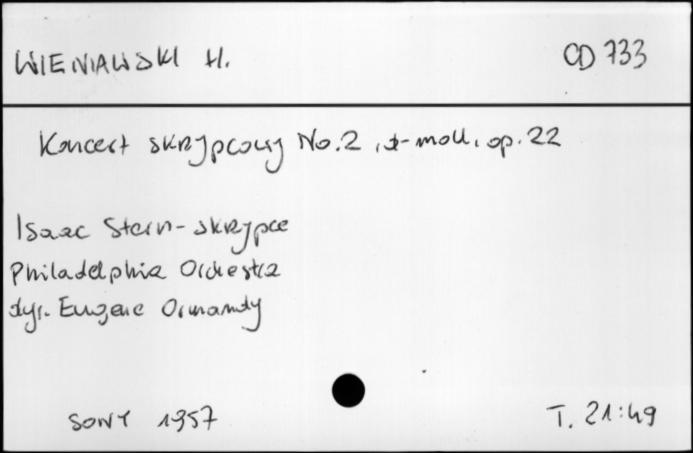 WIENIAWSKI H.
CD 733
Koncert skrzypcowy No.2, d-moll, op.22
Isaac Stern - skrzypce
Philadelphia Orchestra
dyr. Eugene Ormandy
SONY 1957
T. 21:49